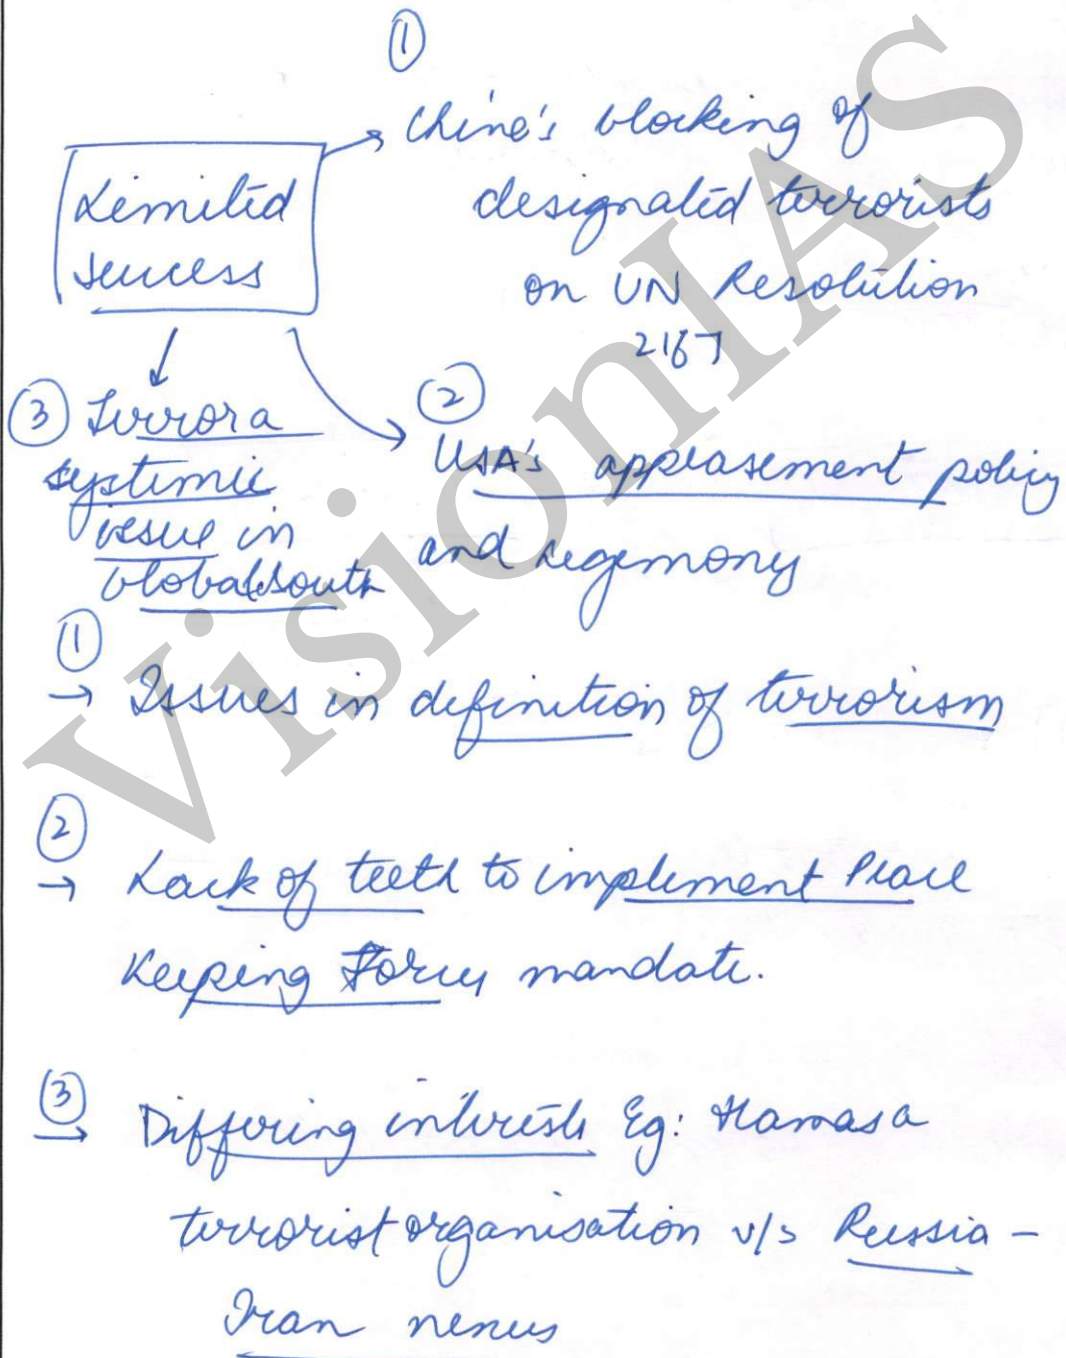 ①
China's blocking of
designated terrorists
on UN Resolution
2167
Limited
success
②
USA's appeasement policy
and hegemony
③ Terror a
systemic
issue in
Global South
①
→ Issues in definition of terrorism
②
→ Lack of teeth to implement Peace
Keeping Forces mandate.
③
→ Differing interests Eg: Hamas a
terrorist organisation v/s Russia -
Iran nexus
VisionIAS